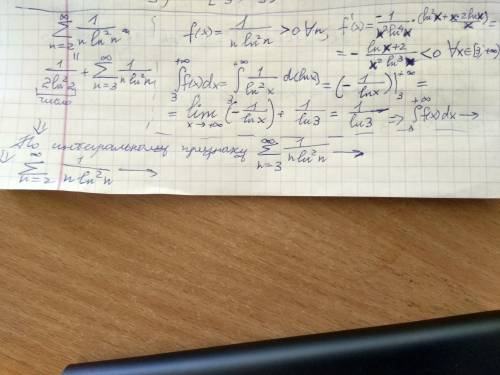 ∑_{n=2}^{∞} 1/(n ln²n) ; f(x) = 1/(n ln²n) > 0 ∀n, f'(x) = -1/(x² ln⁴x) · (ln²x + x · 2lnx/x) =
= -(lnx+2)/(x² ln³x) < 0 ∀x∈[3,+∞)
"
1/(2ln²2) + ∑_{n=3}^{∞} 1/(n ln²n) ; ∫_3^{+∞} f(x)dx = ∫_3^{+∞} 1/(ln²x) d(lnx) = (-1/lnx)|_3^{+∞} =
число
= lim_{x→+∞} (-1/lnx) + 1/ln3 = 1/ln3 ⇒ ∫_3^{+∞} f(x)dx →
⇓
По интегральному признаку ∑_{n=3}^{∞} 1/(n ln²n) →
⇓ ∑_{n=2}^{∞} 1/(n ln²n) →